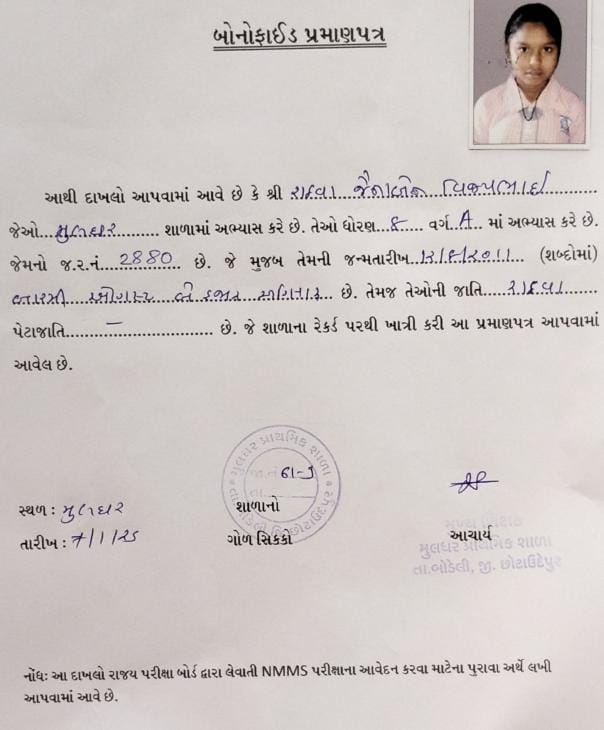 બોનોફાઈડ પ્રમાણપત્ર
આથી દાખલો આપવામાં આવે છે કે શ્રી રાઠવા જૈનાબેન વિજયભાઈ
જેઓ મુલધર શાળામાં અભ્યાસ કરે છે. તેઓ ધોરણ ૮ વર્ગ A માં અભ્યાસ કરે છે.
જેમનો જ.ર.નં. 2880 છે. જે મુજબ તેમની જન્મતારીખ ૧૨/૮/૨૦૧૧ (શબ્દોમાં)
બારમી ઓગસ્ટ બે હજાર અગિયાર છે. તેમજ તેઓની જાતિ રાઠવા
પેટાજાતિ – છે. જે શાળાના રેકર્ડ પરથી ખાત્રી કરી આ પ્રમાણપત્ર આપવામાં
આવેલ છે.
મુલધર પ્રાથમિક શાળા
સ્થળ : મુલધર
શાળાનો
તારીખ : 7/1/25
ગોળ સિક્કો
આચાર્ય
મુખ્ય શિક્ષક
મુલધર પ્રાથમિક શાળા
તા.બોડેલી, જી. છોટાઉદેપુર
નોંધઃ આ દાખલો રાજય પરીક્ષા બોર્ડ દ્વારા લેવાતી NMMS પરીક્ષાના આવેદન કરવા માટેના પુરાવા અર્થે લખી
આપવામાં આવે છે.